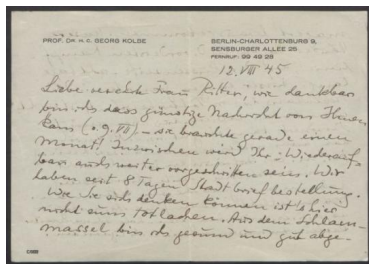 PROF. DR. H. C. GEORG KOLBE
BERLIN-CHARLOTTENBURG 9,
SENSBURGER ALLEE 25
FERNRUF: 99 49 28
12. VIII 45
Liebe verehrte Frau Ritter, wie dankbar
bin ich dass günstige Nachricht von Ihnen
kam (v. 9. VII) – sie brauchte gerade einen
Monat! Inzwischen wird Ihr Wiederauf-
bau auch weiter vorgeschritten sein. Wir
haben seit 8 Tagen Stadtbriefbestellung.
Wie Sie sich denken können ist es hier
nicht zum totlachen. Aus dem Schlam-
massel bin ich gesund und gut abge-